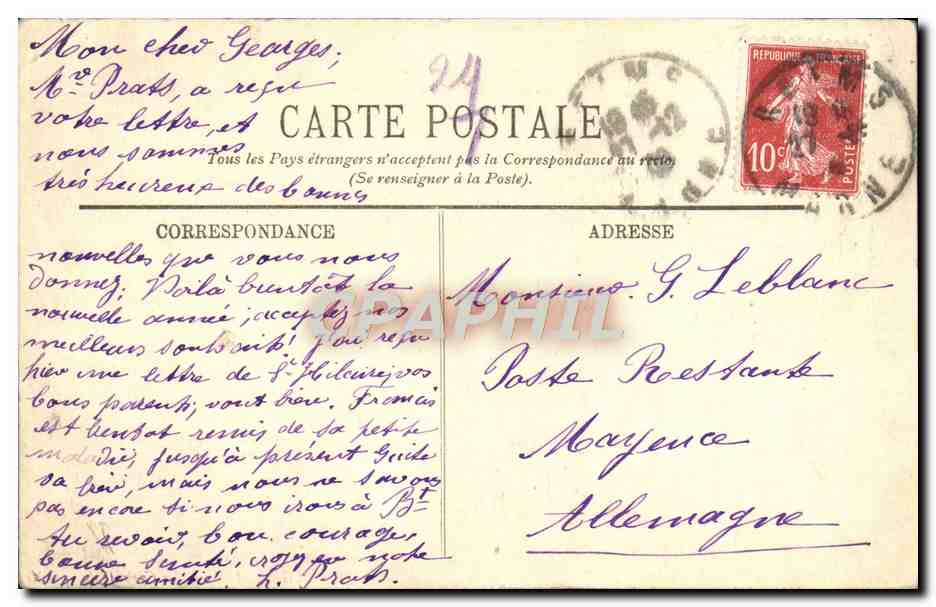 Mon cher Georges;
Mr Prats, a reçu
votre lettre, et
nous sommes
très heureux des bonnes
24
CARTE POSTALE
Tous les Pays étrangers n'acceptent pas la Correspondance au recto
(Se renseigner à la Poste).
REPUBLIQUE FRANÇAISE
10c
POSTES
REIMS
MARNE
CORRESPONDANCE
nouvelles que vous nous
donnez; Voilà bientôt la
nouvelle année; acceptez nos
meilleurs souhaits! J'ai reçu
hier une lettre de St Hilaire, vos
bons parents, vont bien. Francis
est bientot remis de sa petite
maladie, jusqu'à présent
va bien, mais nous ne savons
pas encore si nous irons à Bt
Au revoir, bon courage,
bonne santé, croyez en notre
sincère amitié. L. Prats.
ADRESSE
Monsieur G. Leblanc
Poste Restante
Mayence
Allemagne
CPAPHIL